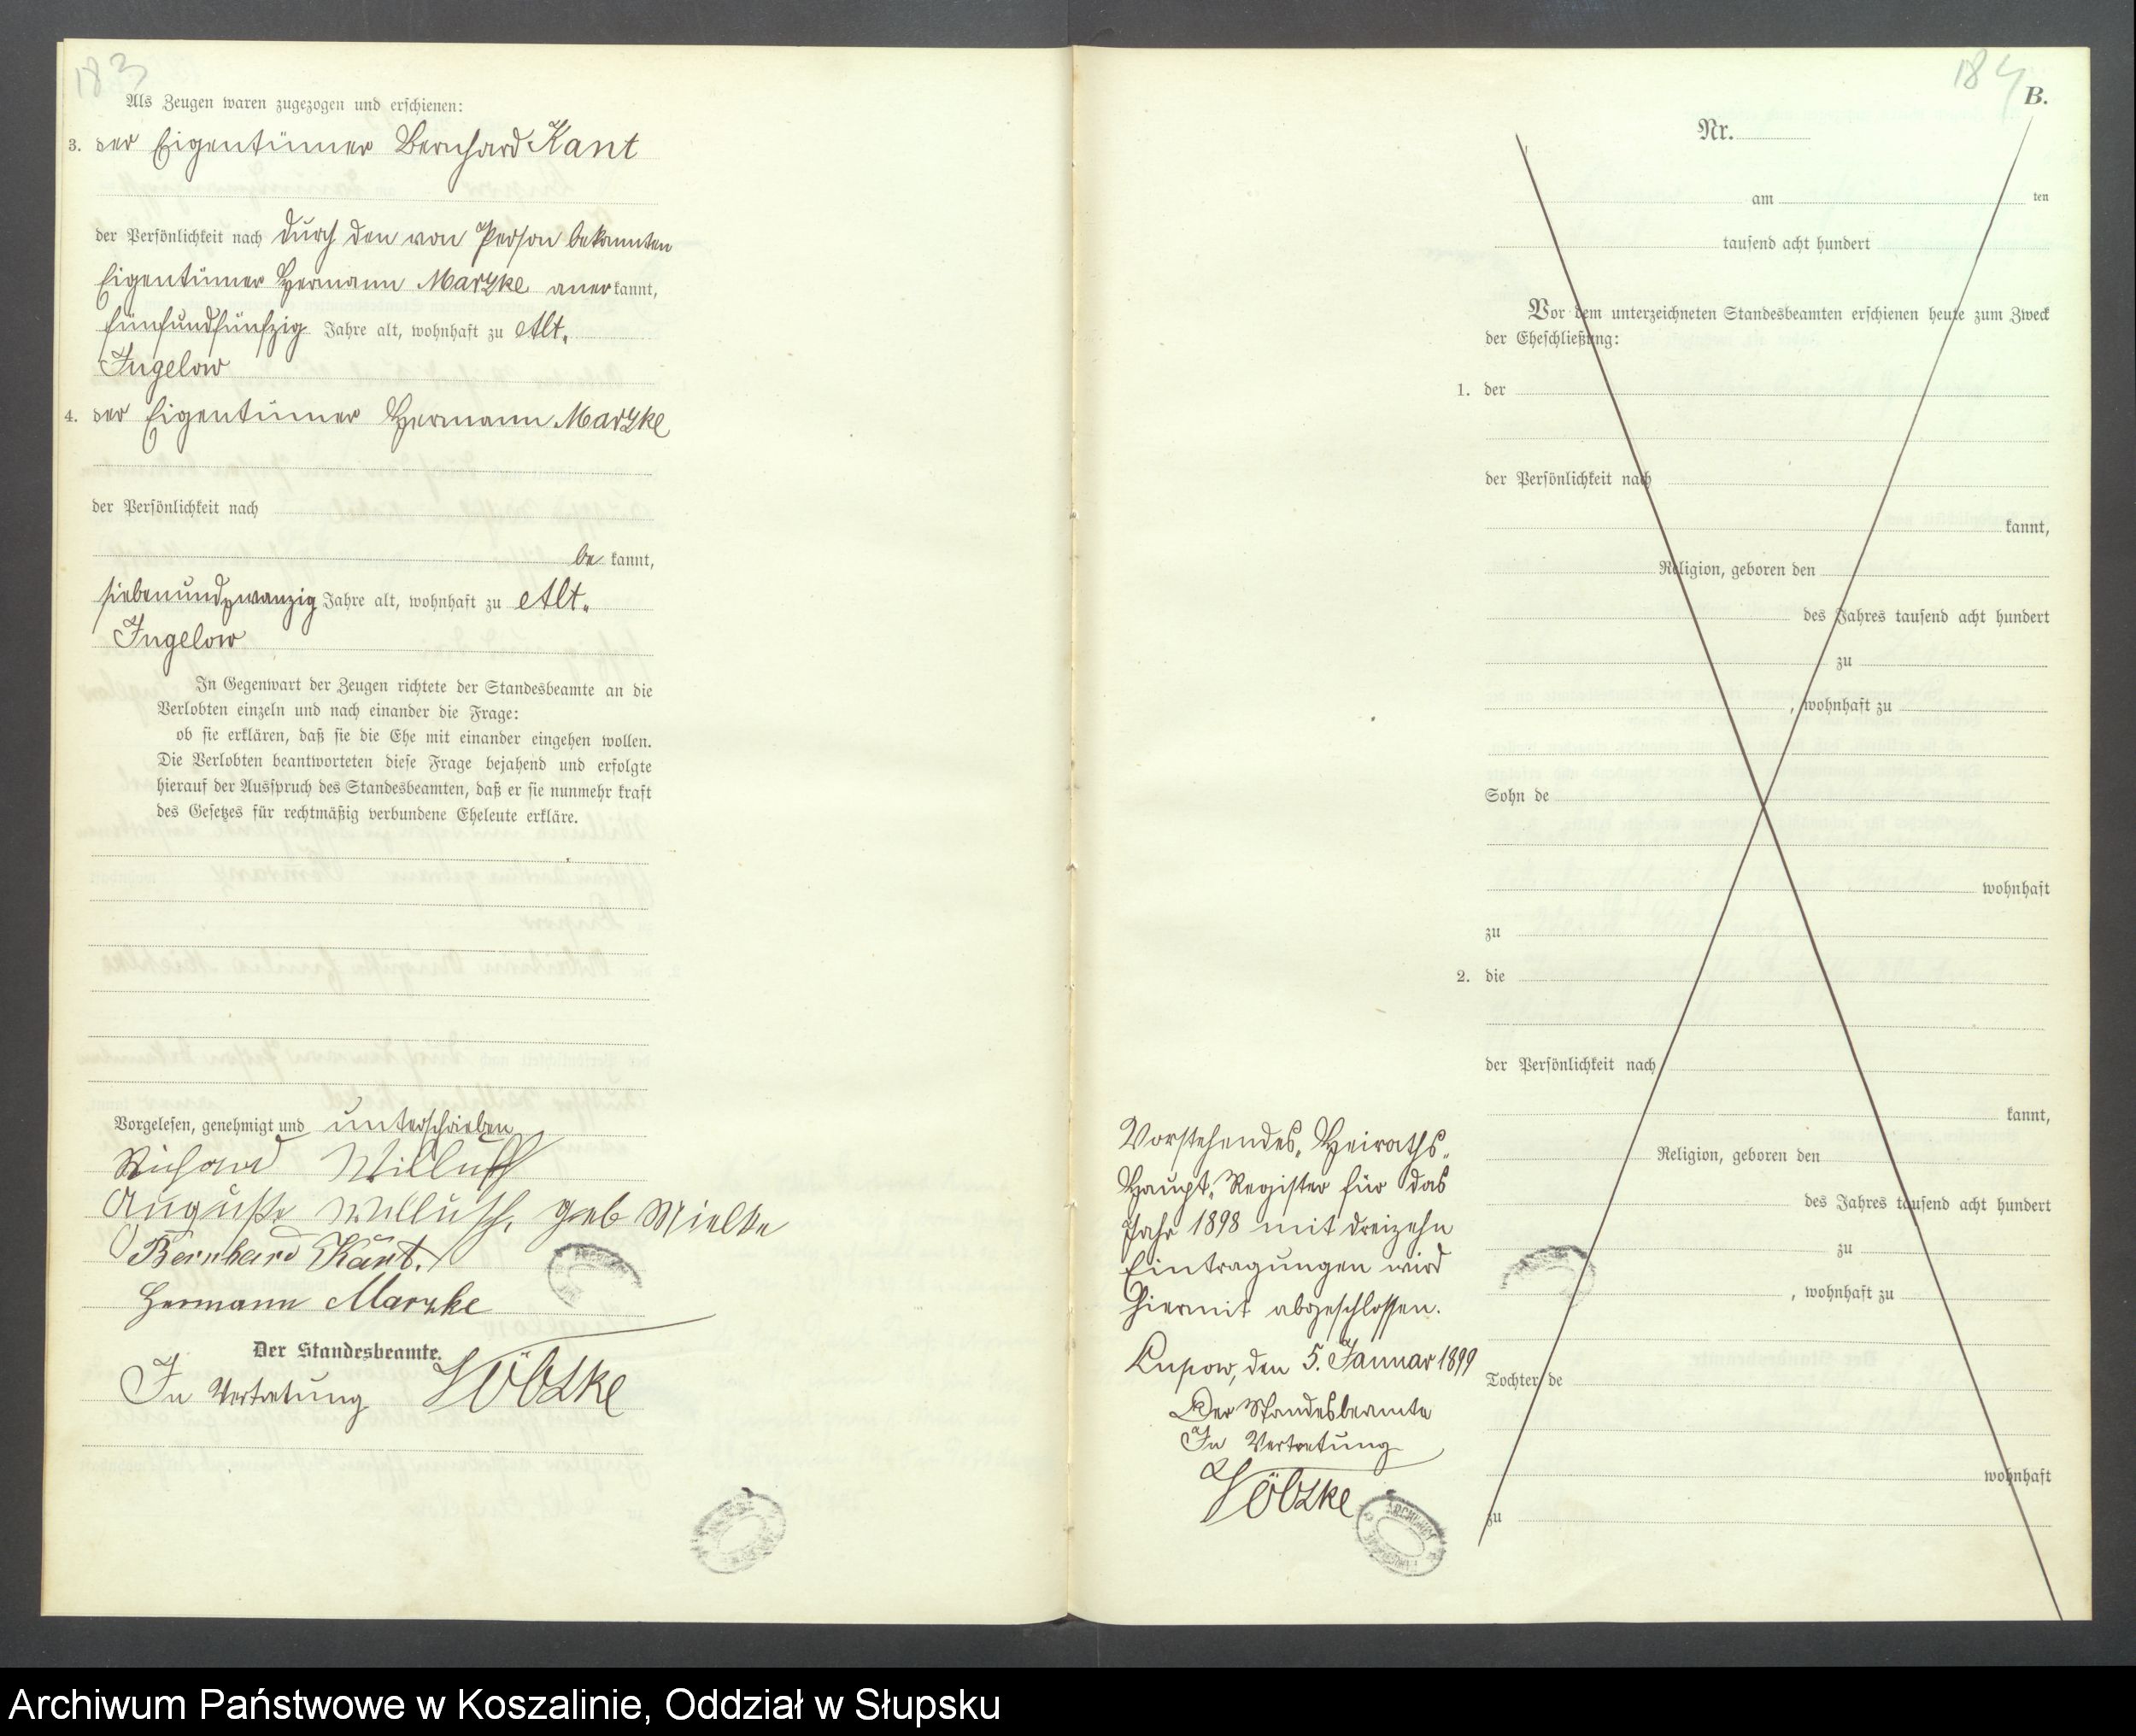 183
Als Zeugen waren zugezogen und erschienen:
3. der Eigentümer Bernhard Kant
der Persönlichkeit nach durch den von Person bekannten
Eigentümer Hermann Marzke anerkannt,
fünfundfünfzig Jahre alt, wohnhaft zu Alt-
Jugelow
4. der Eigentümer Hermann Marzke
der Persönlichkeit nach
be kannt,
siebenundzwanzig Jahre alt, wohnhaft zu Alt-
Jugelow
In Gegenwart der Zeugen richtete der Standesbeamte an die
Verlobten einzeln und nach einander die Frage:
ob sie erklären, daß sie die Ehe mit einander eingehen wollen.
Die Verlobten beantworteten diese Frage bejahend und erfolgte
hierauf der Ausspruch des Standesbeamten, daß er sie nunmehr kraft
des Gesetzes für rechtmäßig verbundene Eheleute erkläre.
Vorgelesen, genehmigt und unterschrieben
Richard Willusch
Auguste Willusch, geb Mielke
Bernhard Kant.
Hermann Marzke
Der Standesbeamte.
In Vertretung
184
B.
Nr.
am ten
tausend acht hundert
Vor dem unterzeichneten Standesbeamten erschienen heute zum Zweck
der Eheschließung:
1. der
der Persönlichkeit nach
kannt,
Religion, geboren den
des Jahres tausend acht hundert
zu
, wohnhaft zu
Sohn de
wohnhaft
zu
2. die
der Persönlichkeit nach
kannt,
Religion, geboren den
des Jahres tausend acht hundert
zu
, wohnhaft zu
Tochter de
wohnhaft
zu
Vorstehendes Heiraths-
Haupt-Register für das
Jahr 1898 mit dreizehn
Eintragungen wird
hiermit abgeschlossen.
Lupow, den 5. Januar 1899
Der Standesbeamte
In Vertretung
Archiwum Państwowe w Koszalinie, Oddział w Słupsku